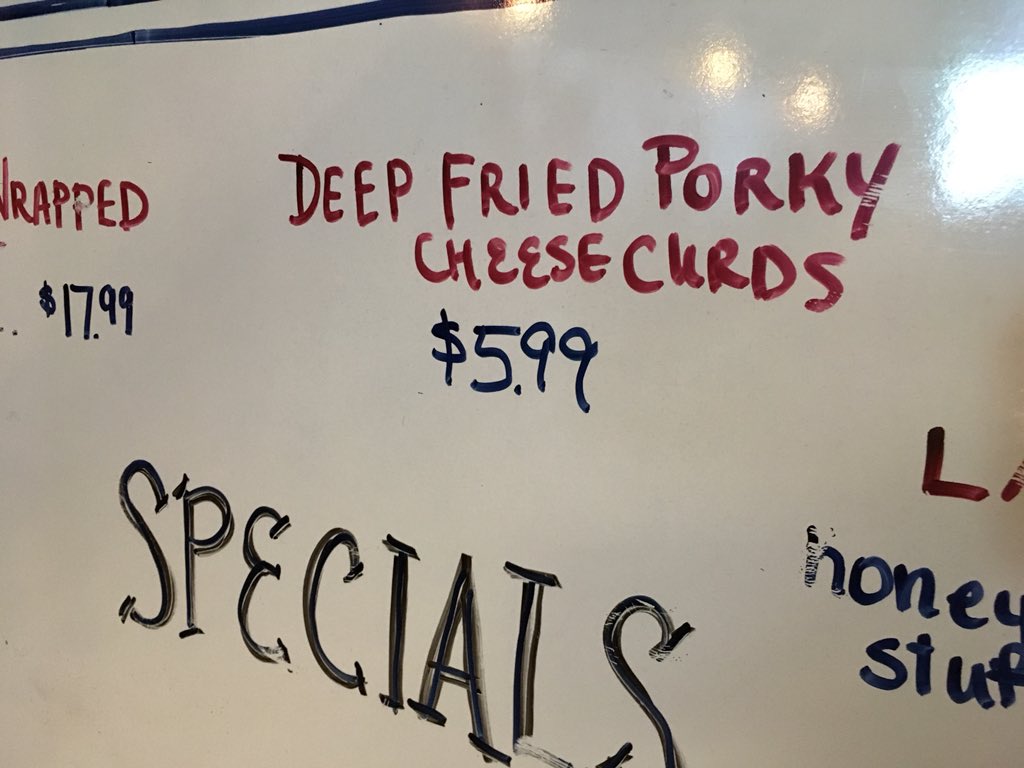 WRAPPED
$17.99
DEEP FRIED PORKY
CHEESE CURDS
$5.99
SPECIALS
honey